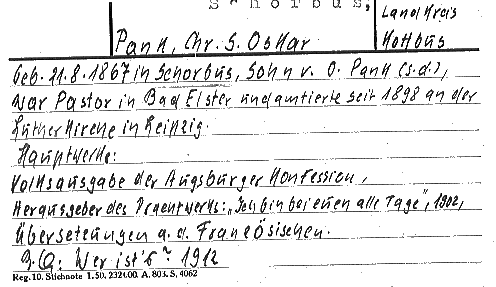 Schorbus,
Landkreis
Pank, Chr. S. Oskar
Kottbus
Geb. 21.8.1867 in Schorbus, Sohn v. O. Pank (s.d.),
war Pastor in Bad Elster und amtierte seit 1898 an der
Lutherkirche in Leipzig.
Hauptwerke:
Volksausgabe der Augsburger Konfession,
Herausgeber des Praentwerks: „Ich bin bei euen alle Tage", 1902,
Übersetzungen a. d. Französischen.
Z.Q: Wer ist's? 1912
Reg. 10. Stichnote 1. 50. 2321.00. A. 803. S. 4062